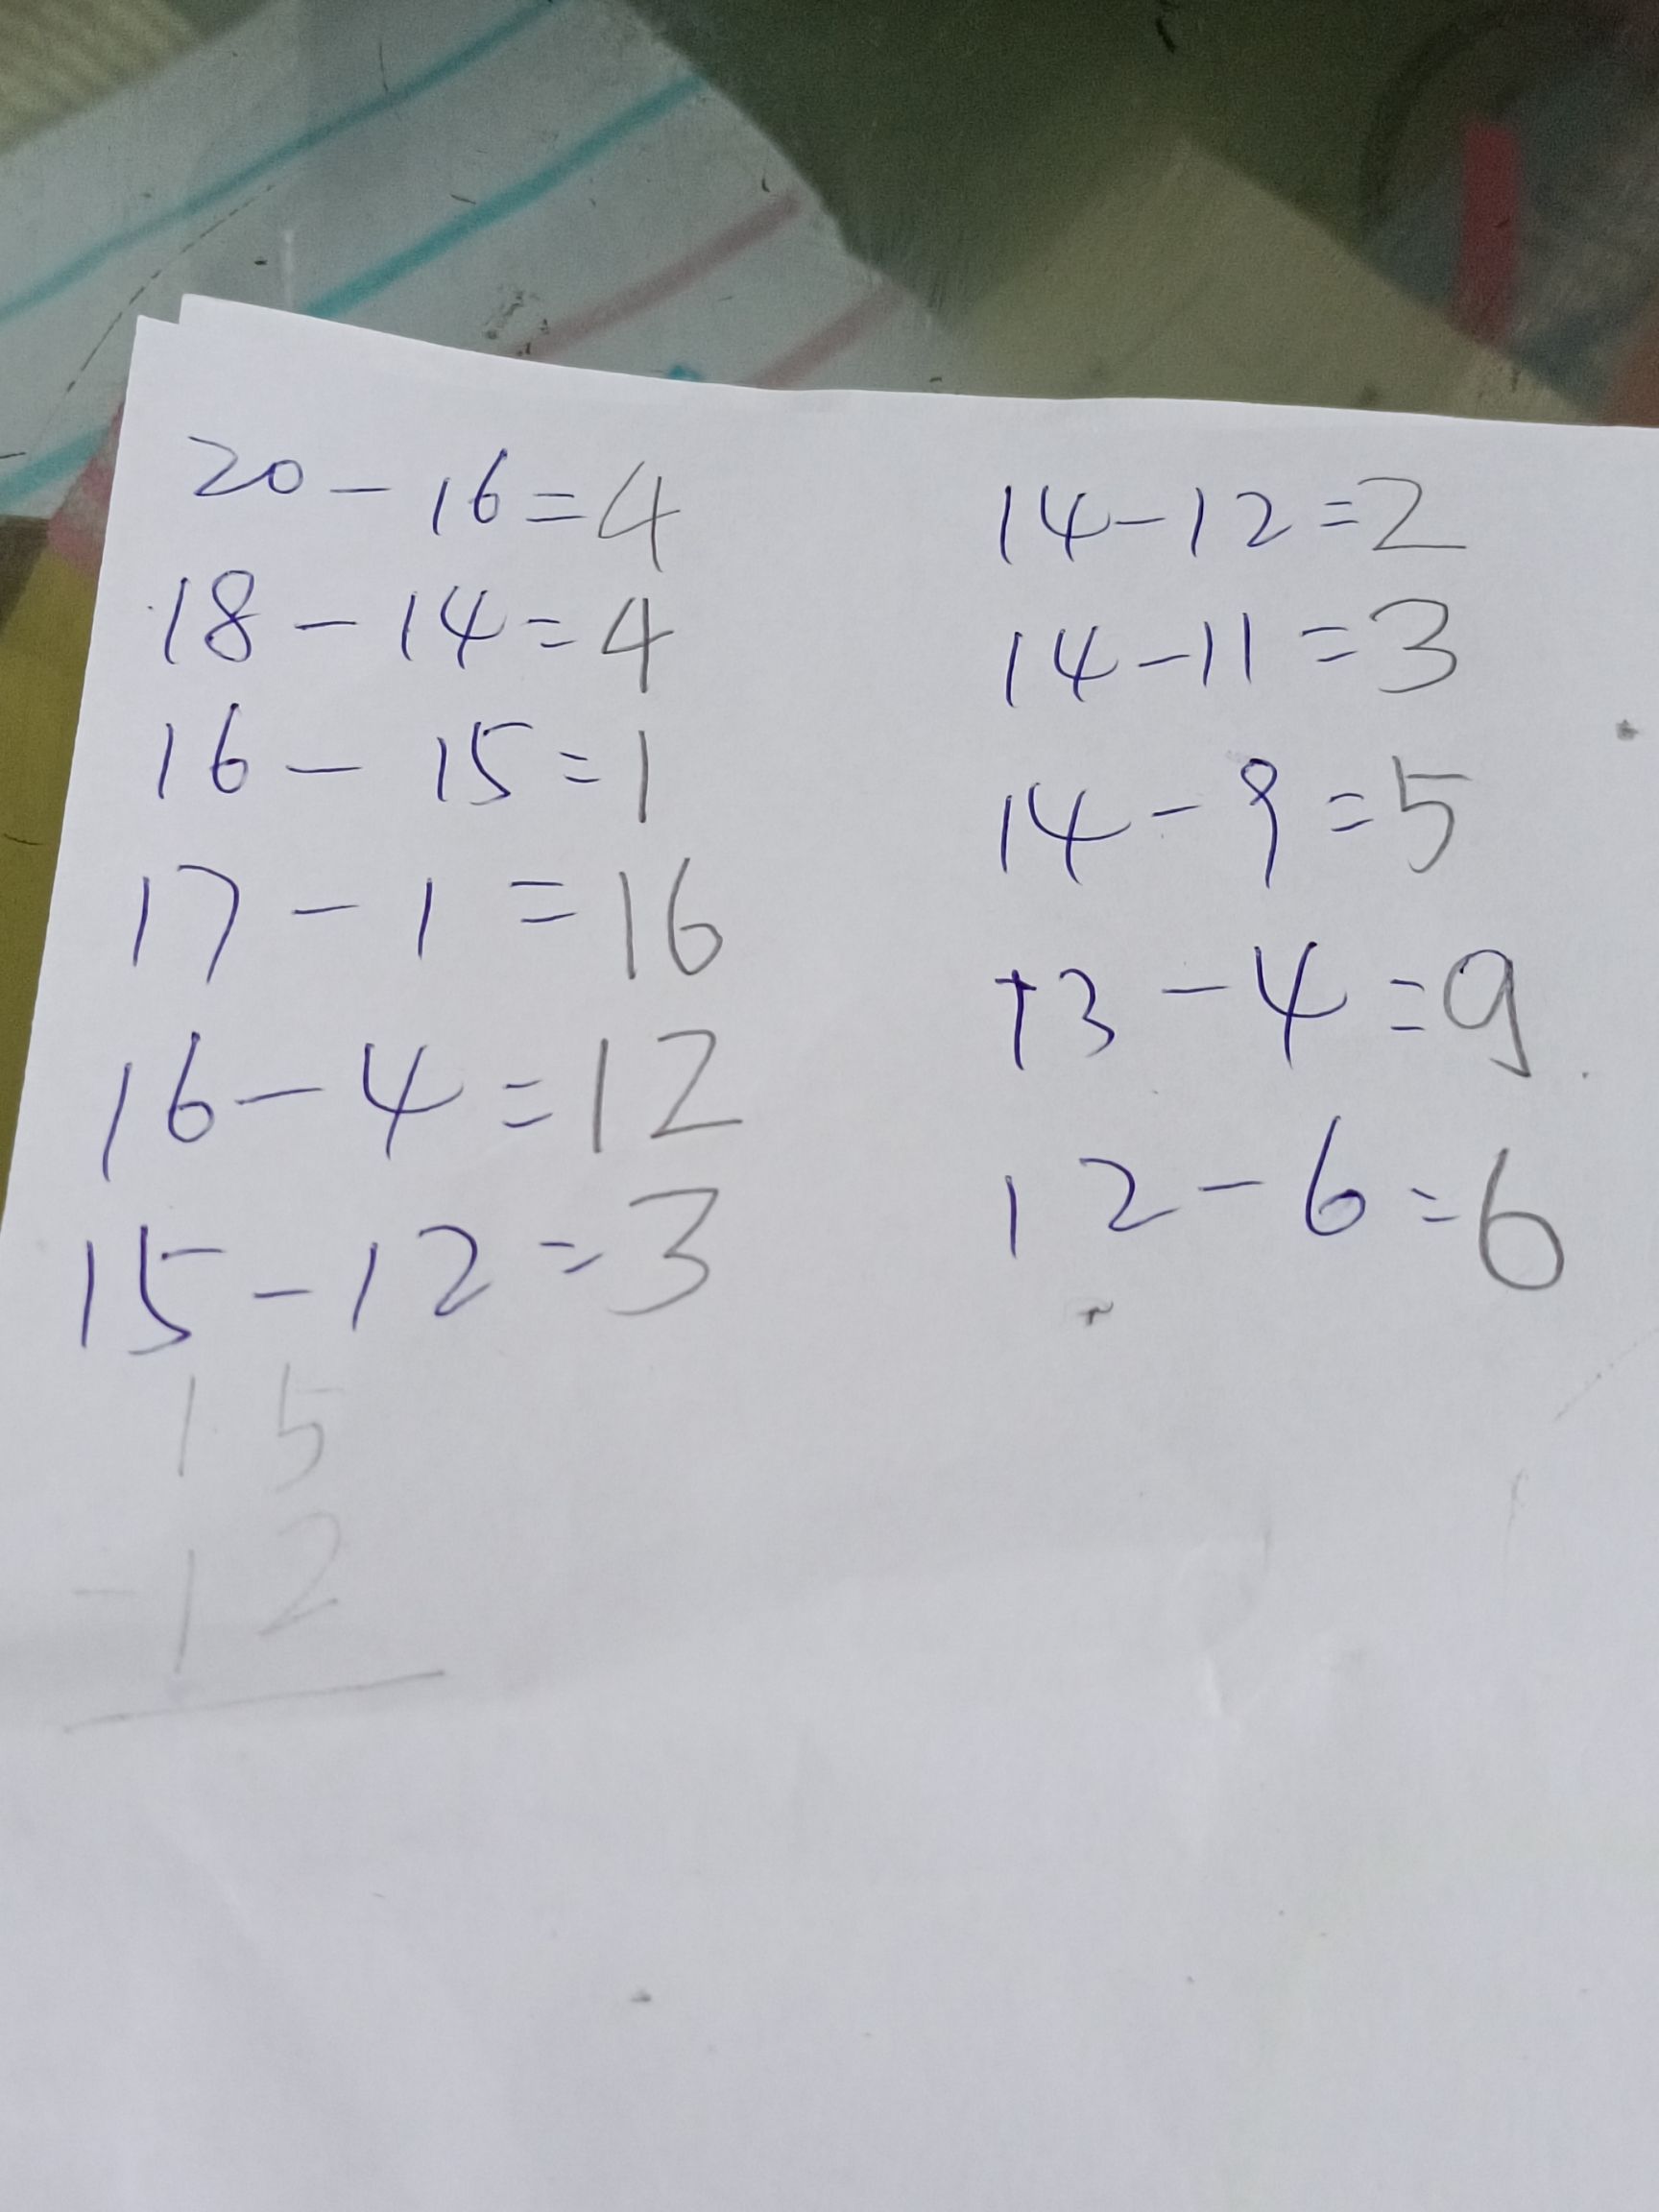 20-16=4
18-14=4
16-15=1
17-1=16
16-4=12
15-12=3
15
-12
14-12=2
14-11=3
14-9=5
13-4=9
12-6=6